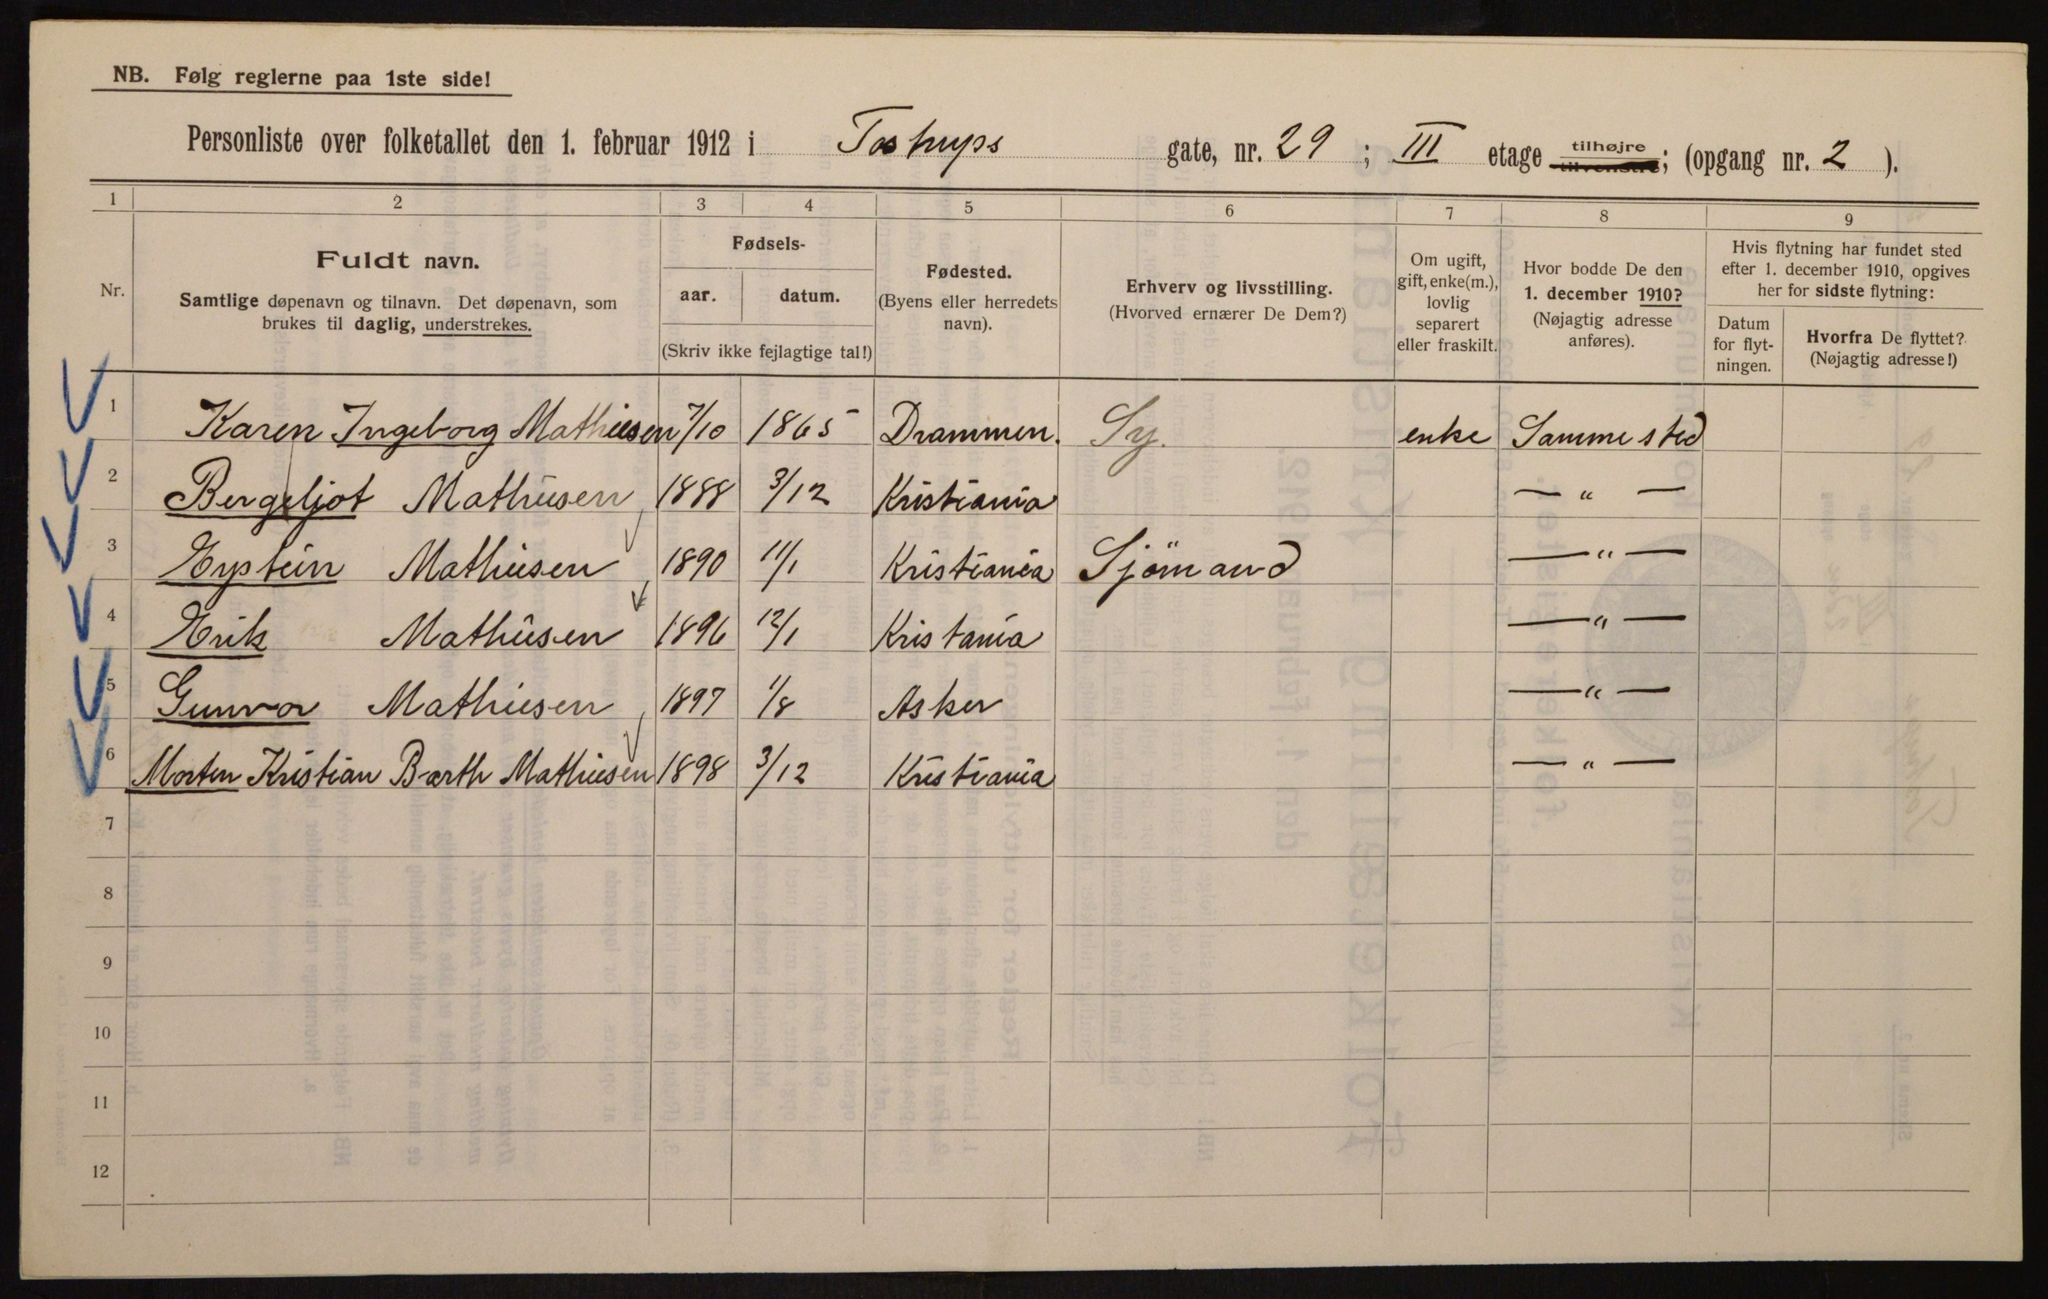 NB. Følg reglerne paa 1ste side!
Personliste over folketallet den 1. februar 1912 i Tostrups gate, nr. 29 ; III etage tilhøjre tilvenstre; (opgang nr. 2 ).
1 2 3 4 5 6 7 8 9
Nr.
Fuldt navn.
Samtlige døpenavn og tilnavn. Det døpenavn, som
brukes til daglig, understrekes.
Fødsels-
aar. datum.
(Skriv ikke fejlagtige tal!)
Fødested.
(Byens eller herredets
navn).
Erhverv og livsstilling.
(Hvorved ernærer De Dem?)
Om ugift,
gift, enke(m.),
lovlig
separert
eller fraskilt.
Hvor bodde De den
1. december 1910?
(Nøjagtig adresse
anføres).
Hvis flytning har fundet sted
efter 1. december 1910, opgives
her for sidste flytning:
Datum
for flyt-
ningen.
Hvorfra De flyttet?
(Nøjagtig adresse!)
1 Karen Ingeborg Mathiesen 7/10 1865 Drammen. Sy. enke Samme sted
2 Bergeljot Mathiesen 1888 3/12 Kristiania — " —
3 Eystein Mathiesen 1890 11/1 Kristiania Sjömand — " —
4 Erik Mathiesen 1896 12/1 Kristania — " —
5 Gunvor Mathiesen 1897 1/8 Asker — " —
6 Morten Kristian Barth Mathiesen 1898 3/12 Kristiania — " —
7
8
9
10
11
12